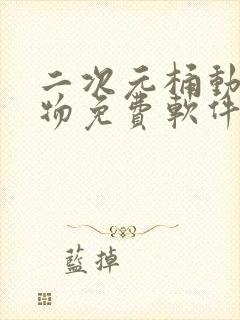 二次元桶動
物免費軟件
藍掉